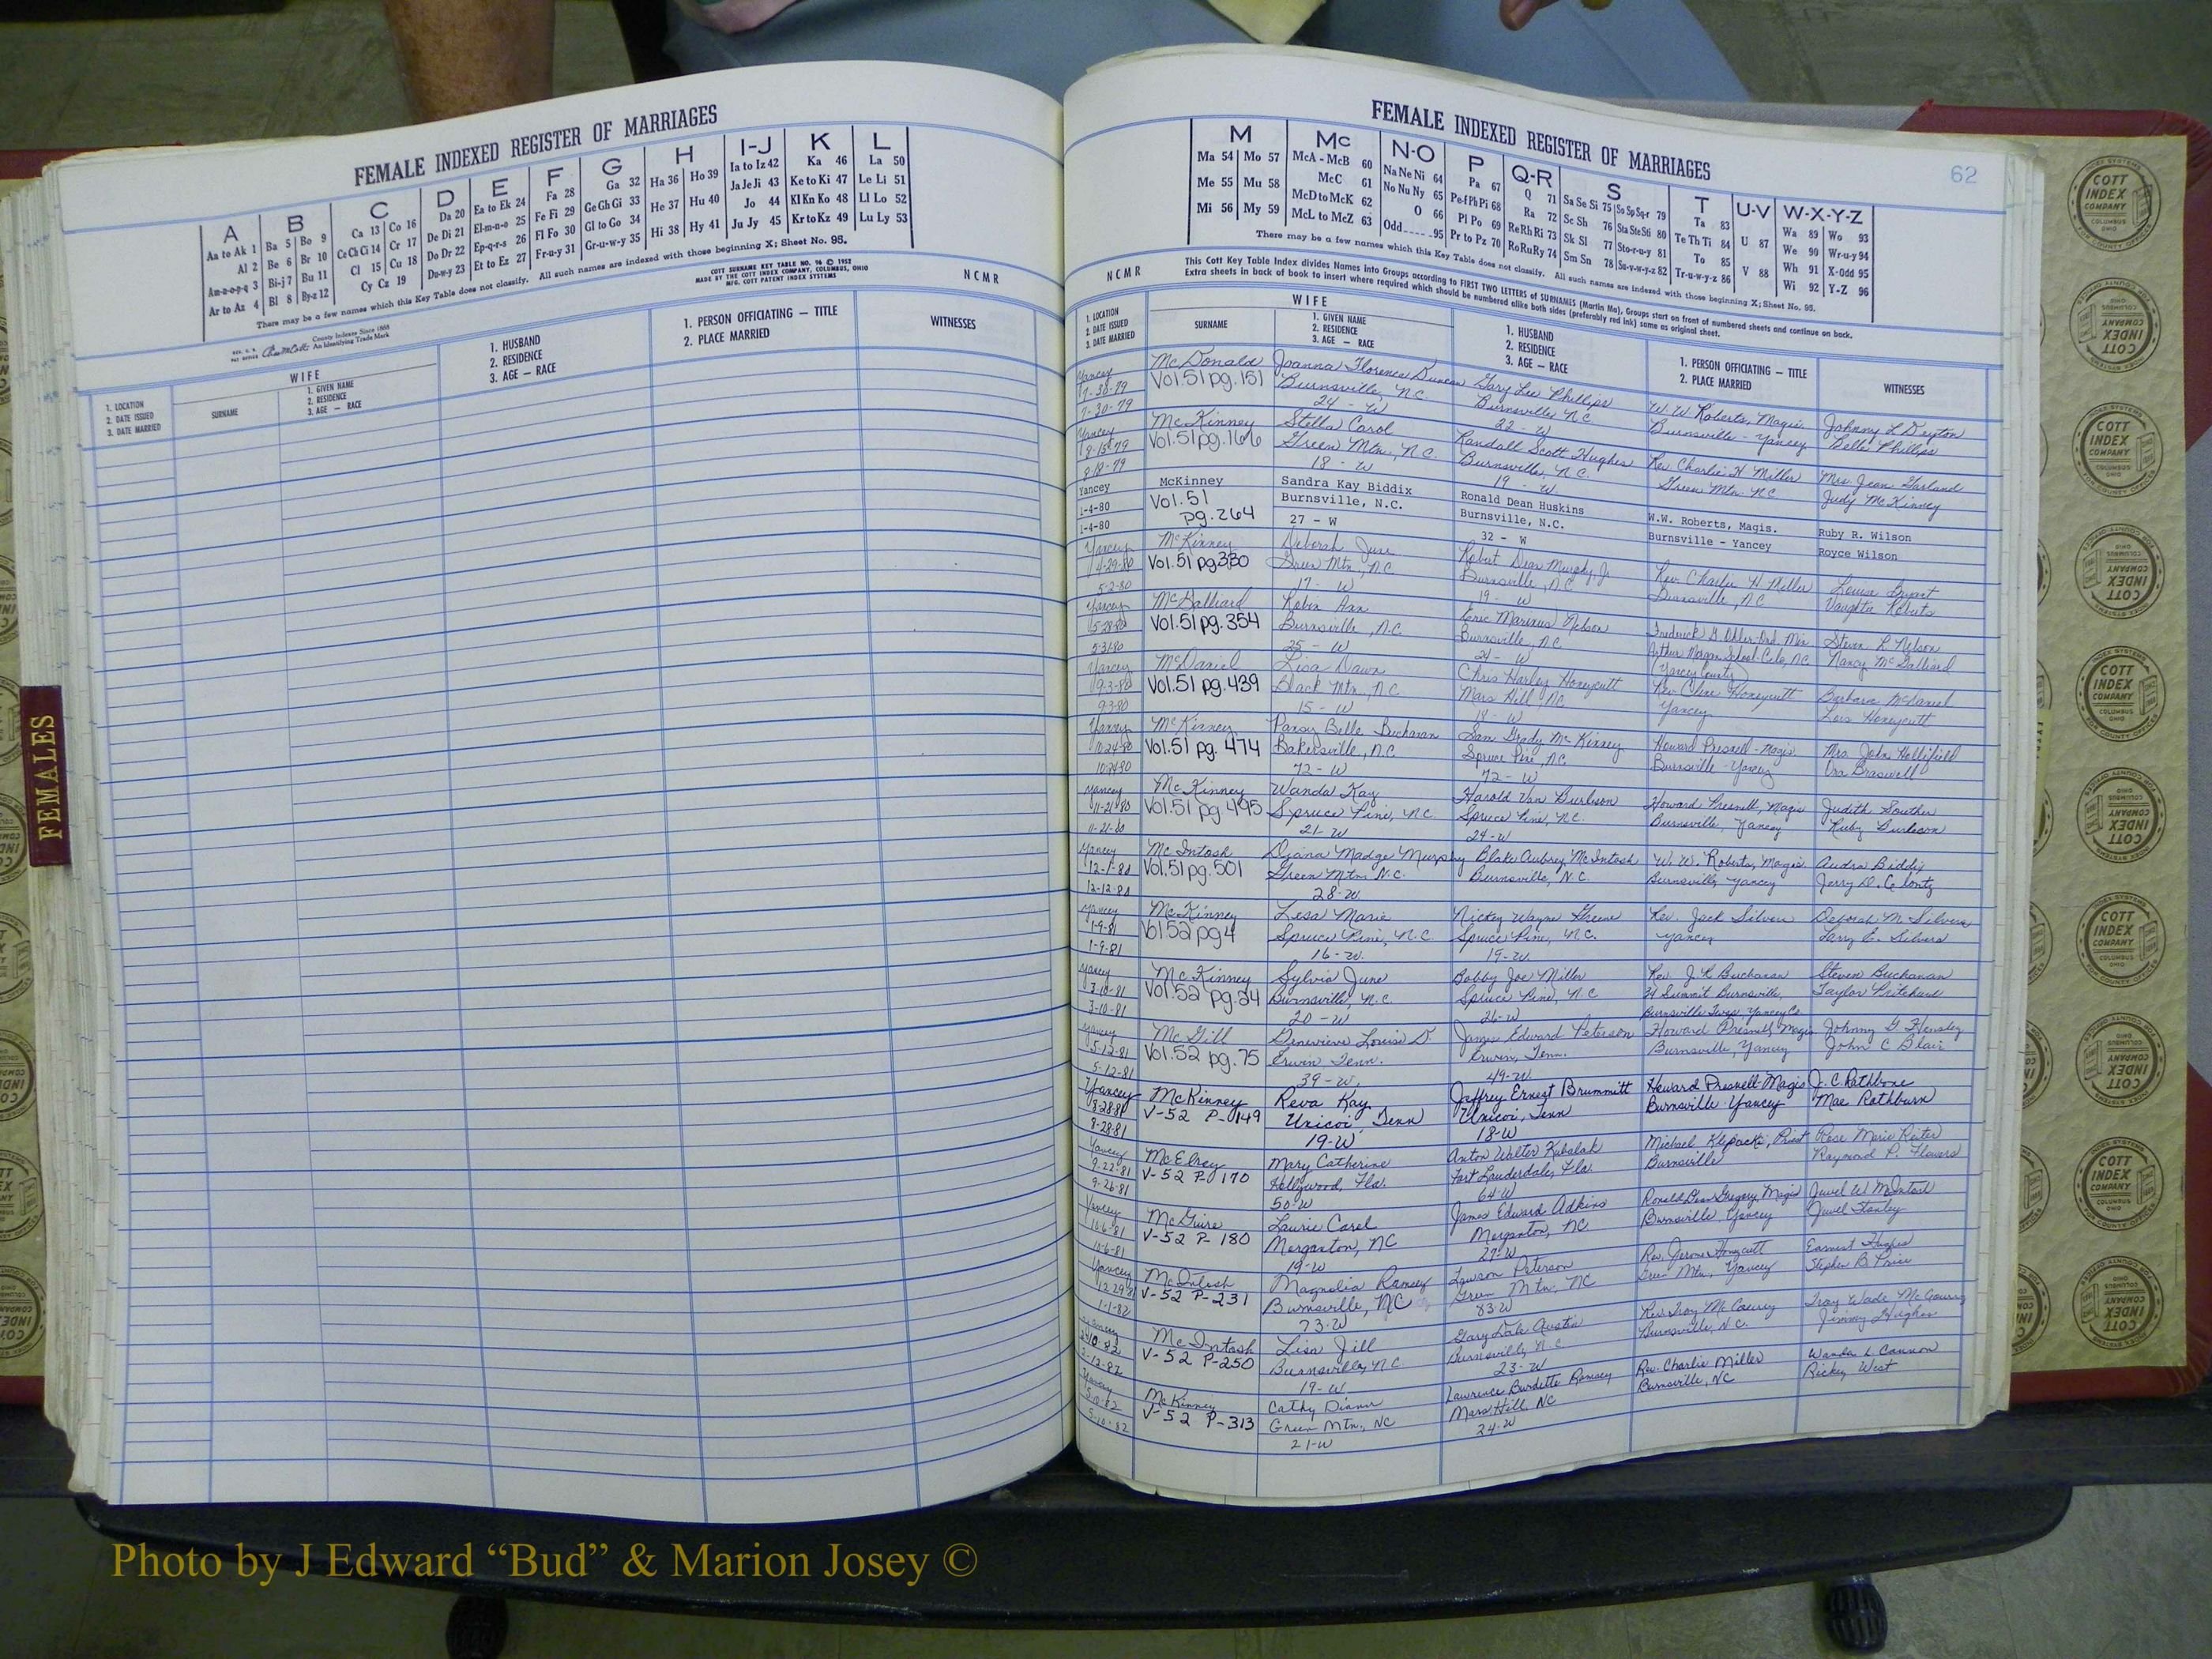 FEMALE INDEXED REGISTER OF MARRIAGES
A B C D E F G H I-J K L
Aa to Ak 1 Ba 5 Bo 9 Ca 13 Co 16 Da 20 Ea to Ek 24 Fa 28 Ga 32 Ha 36 Ho 39 Ia to Iz 42 Ka 46 La 50
Al 2 Be 6 Br 10 Ce Ch Ci 14 Cr 17 De Di 21 El-m-n-o 25 Fe Fi 29 Ge Gh Gi 33 He 37 Hu 40 Ja Je Ji 43 Ke to Ki 47 Le Li 51
Am-n-o-p-q 3 Bi-j 7 Bu 11 Cl 15 Cu 18 Do Dr 22 Ep-q-r-s 26 Fl Fo 30 Gl to Go 34 Hi 38 Hy 41 Jo 44 Kl Kn Ko 48 Ll Lo 52
Ar to Az 4 Bl 8 By-z 12 Cy Cz 19 Du-w-y 23 Et to Ez 27 Fr-u-y 31 Gr-u-w-y 35 Ju Jy 45 Kr to Kz 49 Lu Ly 53
There may be a few names which this Key Table does not classify. All such names are indexed with those beginning X; Sheet No. 95.
COTT SURNAME KEY TABLE NO. 96 © 1952
MADE BY THE COTT INDEX COMPANY, COLUMBUS, OHIO
MFG. COTT PATENT INDEX SYSTEMS
NCMR
County Indexes Since 1888
An Identifying Trade Mark
1. LOCATION
2. DATE ISSUED
3. DATE MARRIED
WIFE
SURNAME
1. GIVEN NAME
2. RESIDENCE
3. AGE — RACE
1. HUSBAND
2. RESIDENCE
3. AGE — RACE
1. PERSON OFFICIATING — TITLE
2. PLACE MARRIED
WITNESSES
FEMALES
FEMALE INDEXED REGISTER OF MARRIAGES
62
M Mc N-O P Q-R S T U-V W-X-Y-Z
Ma 54 Mo 57 McA - McB 60 Na Ne Ni 64 Pa 67 Q 71 Sa Se Si 75 So Sp Sq-r 79 Ta 83 Wa 89 Wo 93
Me 55 Mu 58 McC 61 No Nu Ny 65 Pe-f Ph Pi 68 Ra 72 Sc Sh 76 Sta Ste Sti 80 Te Th Ti 84 U 87 We 90 Wr-u-y 94
Mi 56 My 59 McD to McK 62 O 66 Pl Po 69 Re Rh Ri 73 Sk Sl 77 Sto-r-u-y 81 To 85 Wh 91 X-Odd 95
McL to McZ 63 Odd 95 Pr to Pz 70 Ro Ru Ry 74 Sm Sn 78 Su-v-w-y-z 82 Tr-u-w-y-z 86 V 88 Wi 92 Y-Z 96
There may be a few names which this Key Table does not classify. All such names are indexed with those beginning X; Sheet No. 95.
NCMR
This Cott Key Table Index divides Names into Groups according to FIRST TWO LETTERS of SURNAMES (Martin Ma). Groups start on front of numbered sheets and continue on back.
Extra sheets in back of book to insert where required which should be numbered alike both sides (preferably red ink) same as original sheet.
1. LOCATION
2. DATE ISSUED
3. DATE MARRIED
WIFE
SURNAME
1. GIVEN NAME
2. RESIDENCE
3. AGE — RACE
1. HUSBAND
2. RESIDENCE
3. AGE — RACE
1. PERSON OFFICIATING — TITLE
2. PLACE MARRIED
WITNESSES
Yancey McDonald Joanna Florence Duncan Gary Lee Phillips W. W. Roberts, Magis. Johnny L Deyton
7-30-79 Vol.51 pg.151 Burnsville, N.C. Burnsville N.C. Burnsville - Yancey Belle Phillips
7-30-79 24 - W 22 - W
Yancey McKinney Stella Carol Randall Scott Hughes Rev. Charlie H Miller Mrs. Jean Garland
Vol.51 pg.166 Green Mtn., N.C. Burnsville, N.C. Green Mtn. N.C. Judy McKinney
18 - W 19 - W
Yancey McKinney Sandra Kay Biddix Ronald Dean Huskins W.W. Roberts, Magis. Ruby R. Wilson
1-4-80 Vol.51 pg.264 Burnsville, N.C. Burnsville, N.C. Burnsville - Yancey Royce Wilson
1-4-80 27 - W 32 - W
Yancey McKinney Deborah June Robert Dean Murphy, Jr Rev. Charlie H Miller Louise
4-29-80 Vol.51 pg 330 Green Mtn., N.C. Burnsville, N.C. Burnsville, N.C. Roberts
5-2-80 17 - W 19 - W
Yancey McGalliard Robin Ann Eric Marinus Nelson Steven R Nelson
5-28-80 Vol.51 pg.354 Burnsville, N.C. Burnsville, N.C. Arthur Morgan School-Celo, N.C. Nancy McGalliard
5-31-80 25 - W 24 - W (Yancey County)
Yancey McDaniel Lisa Dawn Chris Harley Honeycutt Rev. Cline Honeycutt Barbara McDaniel
9-3-80 Vol.51 pg.439 Black Mtn., N.C. Mars Hill, N.C. Yancey Lois Honeycutt
9-3-80 15 - W 18 - W
Yancey McKinney Pansy Belle Buchanan Sam Grady McKinney Howard Presnell - Magis. Mrs. John Hollifield
10-24-80 Vol.51 pg. 474 Bakersville, N.C. Spruce Pine, N.C. Burnsville - Yancey Ora Braswell
10-24-80 72 - W 72 - W
Yancey McKinney Wanda Kay Harold Van Burleson Howard Presnell, Magis Judith Souther
11-21-80 Vol.51 pg.495 Spruce Pine, N.C. Spruce Pine, N.C. Burnsville, Yancey Ruby Burleson
11-21-80 21-W 24-W
Yancey McIntosh Diana Madge Murphy Blake Aubrey McIntosh W. W. Roberts, Magis. Audra Biddix
12-1-80 Vol.51 pg.501 Green Mtn. N.C. Burnsville, N.C. Burnsville, Yancey Jerry D.
12-12-80 28-W
Yancey McKinney Lesa Marie Nickey Wayne Greene Rev. Jack Silvers Deborah M. Silvers
1-9-81 Vol 52 pg 4 Spruce Pine, N.C. Spruce Pine, N.C. Yancey Larry C. Silvers
1-9-81 16-W 19-W
Yancey McKinney Sylvia June Bobby Joe Miller Rev. J. R Buchanan Steven Buchanan
3-10-81 Vol.52 pg.24 Burnsville, N.C. Spruce Pine, N.C. Summit Burnsville, Taylor Pritchard
3-10-81 20 - W 26-W Burnsville Twsp, Yancey Co.
Yancey McGill Genevieve Louise D. James Edward Peterson Howard Presnell, Magis. Johnny G Hensley
5-12-81 Vol.52 pg.75 Erwin Tenn. Erwin, Tenn. Burnsville, Yancey John C Blair
5-12-81 39-W 49-W
Yancey McKinney Reva Kay Jeffrey Ernest Brummitt Howard Presnell-Magis J. C. Rathbone
8-28-81 V-52 P-149 Unicoi, Tenn Unicoi, Tenn Burnsville Yancey Mae Rathburn
8-28-81 19-W 18-W
Yancey McElroy Mary Catherine Anton Walter Kubalak Michael Klepacki, Priest Rose Marie Reiter
9-22-81 V-52 P-170 Hollywood, Fla. Fort Lauderdale, Fla. Burnsville Raymond P. Flowers
9-26-81 50-W 64-W
Yancey McGuire Laurie Carol James Edward Adkins Ronald Dean Gregory, Magis Jewel W McIntosh
10-6-81 V-52 P- 180 Morganton, NC Morganton, NC Burnsville, Yancey Jewel
10-6-81 19-W 27-W
Yancey McIntosh Magnolia Ramsey Lawson Peterson Rev. Jerome Honeycutt Earnest Hughes
12-29-81 V-52 P-231 Burnsville, NC Green Mtn., NC Green Mtn., Yancey Stephen B. Price
1-1-82 73-W 83-W
Yancey McIntosh Lisa Jill Gary Dale Austin Rev. Troy McCourry Troy Wade McCourry
2-10-82 V-52 P-250 Burnsville, N.C. Burnsville, N.C. Burnsville, N.C. Jimmy Hughes
2-12-82 19-W 23-W
Yancey McKinney Cathy Dianne Lawrence Burdette Ramsey Rev. Charlie Miller Wanda L Cannon
5-10-82 V-52 P-313 Green Mtn., NC Mars Hill, NC Burnsville, NC Rickey West
5-10-82 21-W 24-W
COTT INDEX COMPANY COLUMBUS OHIO
INDEX SYSTEMS
FOR COUNTY OFFICES
Photo by J Edward “Bud” & Marion Josey ©